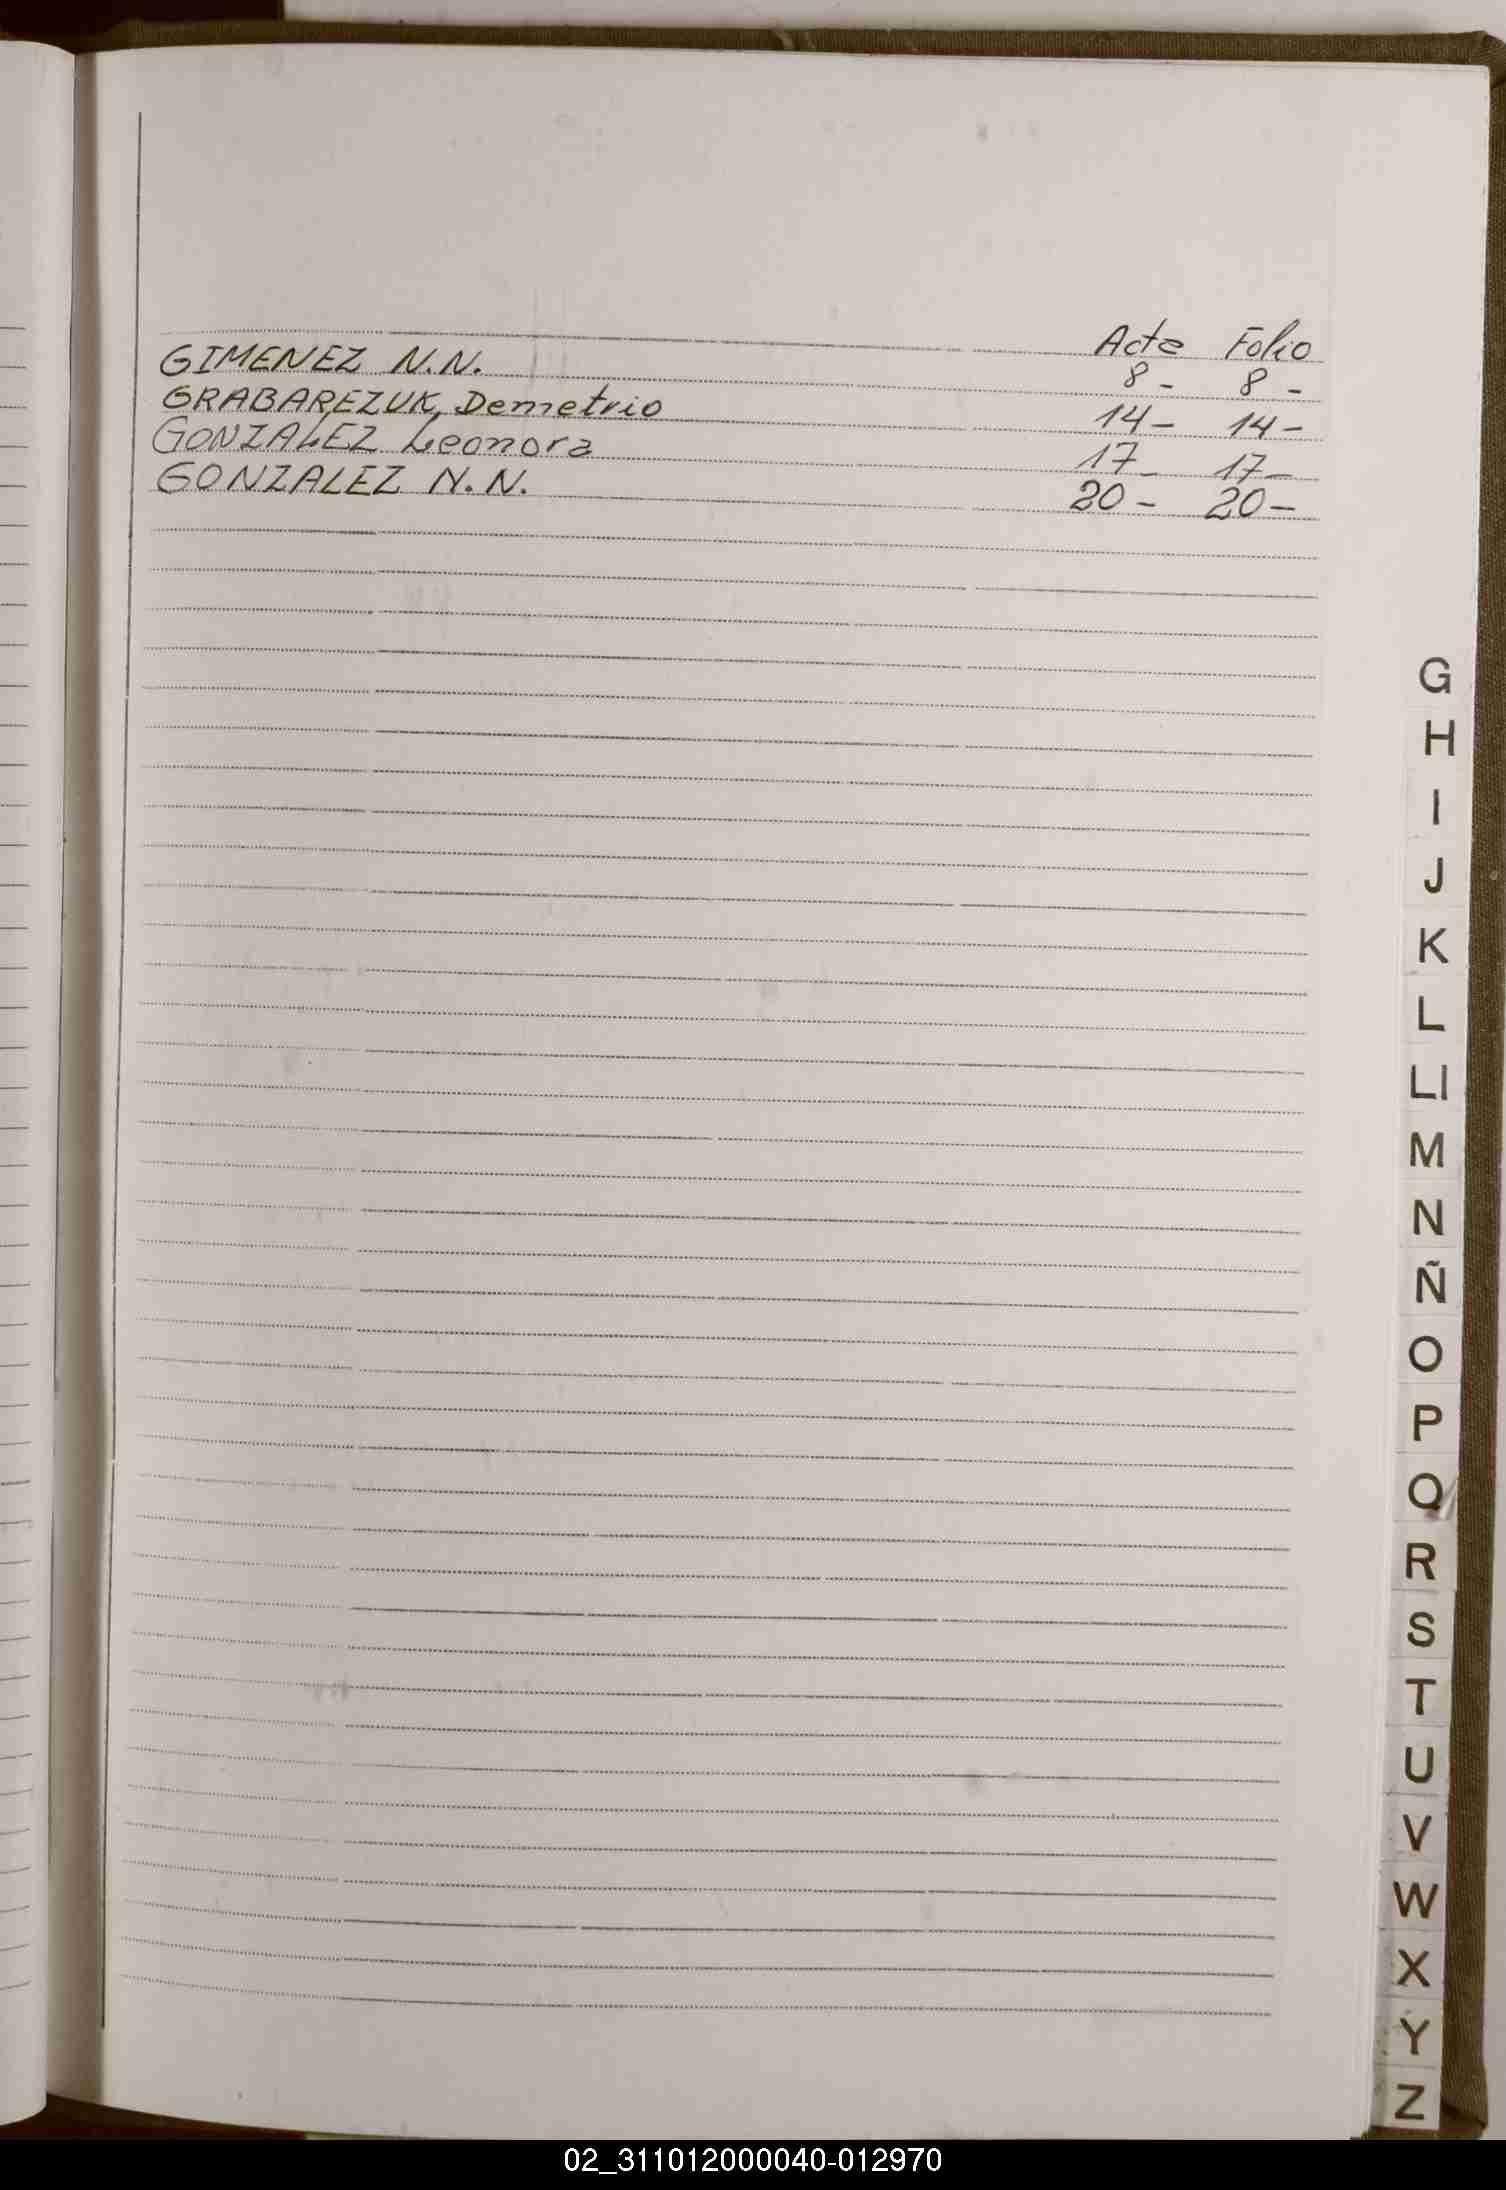 Acta Folio
GIMENEZ N.N. 8 - 8 -
GRABAREZUK, Demetrio 14 - 14 -
GONZALEZ Leonora 17 - 17 -
GONZALEZ N.N. 20 - 20 -
G
H
I
J
K
L
Ll
M
N
Ñ
O
P
Q
R
S
T
U
V
W
X
Y
Z
02_311012000040-012970